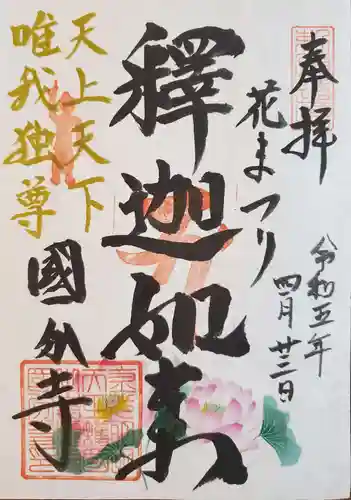 奉拝
花まつり
令和五年
四月廿三日
釋迦如来
天上天下
唯我独尊
國分寺